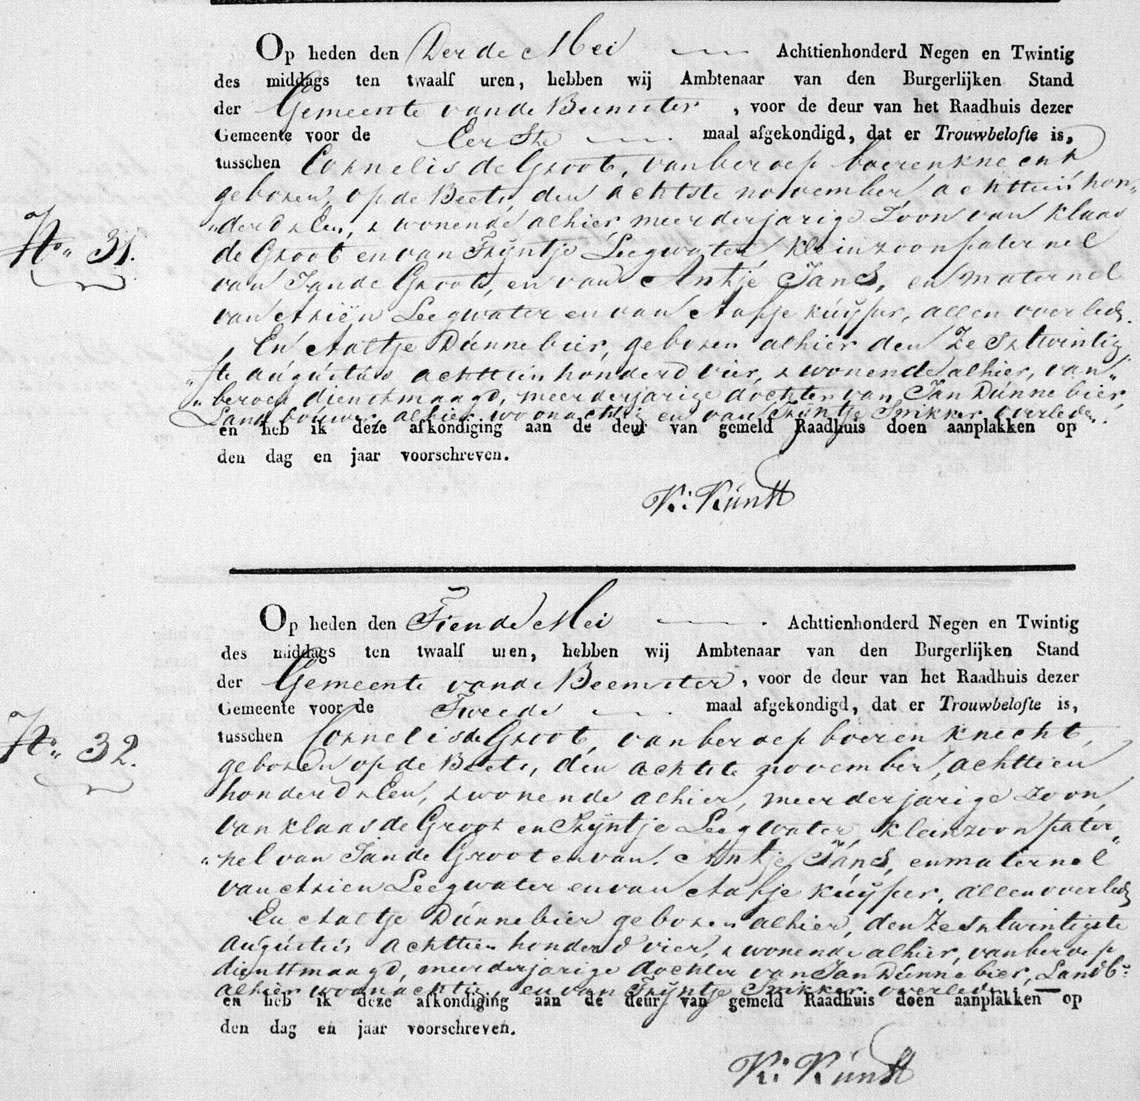 Op heden den Derde Mei Achttienhonderd Negen en Twintig
des middags ten twaalf uren, hebben wij Ambtenaar van den Burgerlijken Stand
der Gemeente van de Beemster, voor de deur van het Raadhuis dezer
Gemeente voor de Eerste maal afgekondigd, dat er Trouwbelofte is,
tusschen Cornelis de Groot, van beroep boerenknecht
geboren, op de Beets, den achtste november, achttien hon-
No 31. „derd Een, & wonende alhier, meerderjarige Zoon van Klaas
de Groot en van Trijntje Leegwater, kleinzoon paternel
van Jan de Groot, en van Antje Jans, en maternel
van Ariën Leegwater en van Aafje Kuijper, allen overled:
En Aaltje Dunnebier, geboren alhier den Zes & twintig
„ste augustus achttien honderd vier, & wonende alhier, van„
„beroep dienstmaagd, meerderjarige dochter van Jan Dunnebier,
Landbouwer alhier woonachtig en van Trijntje Spikker overleden.
en heb ik deze afkondiging aan de deur van gemeld Raadhuis doen aanplakken op
den dag en jaar voorschreven.
K: Kunst
Op heden den Tiende Mei Achttienhonderd Negen en Twintig
des middags ten twaalf uren, hebben wij Ambtenaar van den Burgerlijken Stand
der Gemeente van de Beemster, voor de deur van het Raadhuis dezer
Gemeente voor de Tweede maal afgekondigd, dat er Trouwbelofte is,
tusschen Cornelis de Groot, van beroep boerenknecht,
No 32. geboren op de Beets, den achtste november, achttien
honderd Een, & wonende alhier, meerderjarige zoon,
van Klaas de Groot en Trijntje Leegwater, kleinzoon pater„
„nel van Jan de Groot en van Antje Jans, en maternel
van Arien Leegwater en van Aafje Kuijper, allen overled
En Aaltje Dunnebier geboren alhier, den Zes & twintigste
augustus achttien honderd vier, & wonende alhier, van beroep
dienstmaagd, meerderjarige dochter van Jan Dunnebier, Landb:
alhier woonachtig en van Trijntje Spikker overleden
en heb ik deze afkondiging aan de deur van gemeld Raadhuis doen aanplakken op
den dag en jaar voorschreven.
K: Kunst